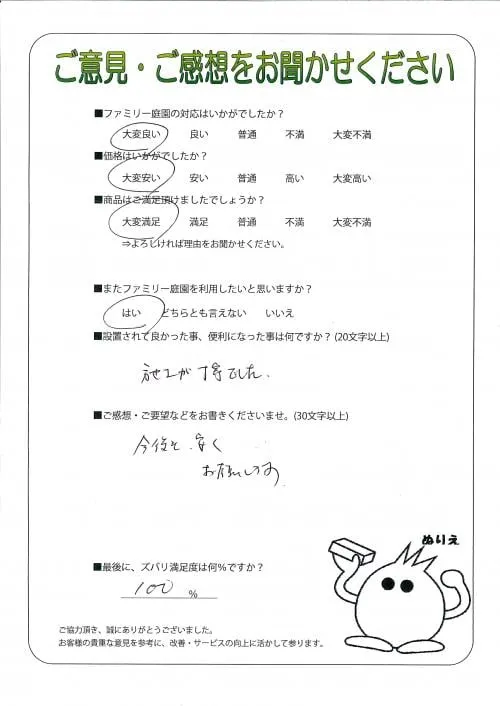 ご意見・ご感想をお聞かせください
■ファミリー庭園の対応はいかがでしたか？
大変良い 良い 普通 不満 大変不満
■価格はいかがでしたか？
大変安い 安い 普通 高い 大変高い
■商品はご満足頂けましたでしょうか？
大変満足 満足 普通 不満 大変不満
⇒よろしければ理由をお聞かせください。
■またファミリー庭園を利用したいと思いますか？
はい どちらとも言えない いいえ
■設置されて良かった事、便利になった事は何ですか？(20文字以上)
施工が丁寧でした。
■ご感想・ご要望などをお書きくださいませ。(30文字以上)
今後も安く
お願いします
ぬりえ
■最後に、ズバリ満足度は何%ですか？
100 %
ご協力頂き、誠にありがとうございました。
お客様の貴重な意見を参考に、改善・サービスの向上に活かして参ります。